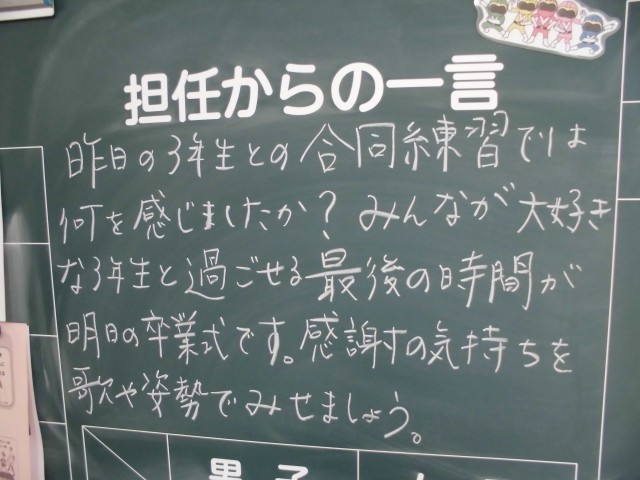 担任からの一言
昨日の3年生との合同練習では
何を感じましたか？みんなが大好き
な3年生と過ごせる最後の時間が
明日の卒業式です。感謝の気持ちを
歌や姿勢でみせましょう。
男子